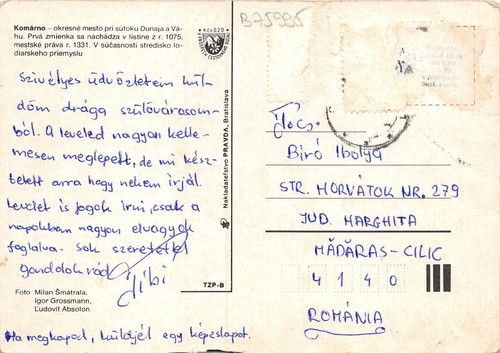 Komárno – okresné mesto pri sútoku Dunaja a Vá-
hu. Prvá zmienka sa nachádza v listine z r. 1075,
mestské práva r. 1331. V súčasnosti stredisko lo-
diarskeho priemyslu
Kčs 0,20
B75995
Szívélyes üdvözletem kül-
döm drága szülővárosom-
ból. A leveled nagyon kelle-
mesen meglepett, de mi kész-
tetett arra hogy nekem írjál.
Levelet is fogok írni, csak a
napokban nagyon elvagyok
foglalva. Sok szeretettel
gondolok rád
Tibi
Foto Milan Šmátrala,
Igor Grossmann,
Ľudovít Absolon
TZP-B
Ha megkapod, küldjél egy képeslapot.
Nakladateľstvo PRAVDA, Bratislava
Biró Ibolya
STR. HORVÁTOK NR. 279
JUD. MARGHITA
MĂDĂRAS-CILIC
4140
ROMÁNIA